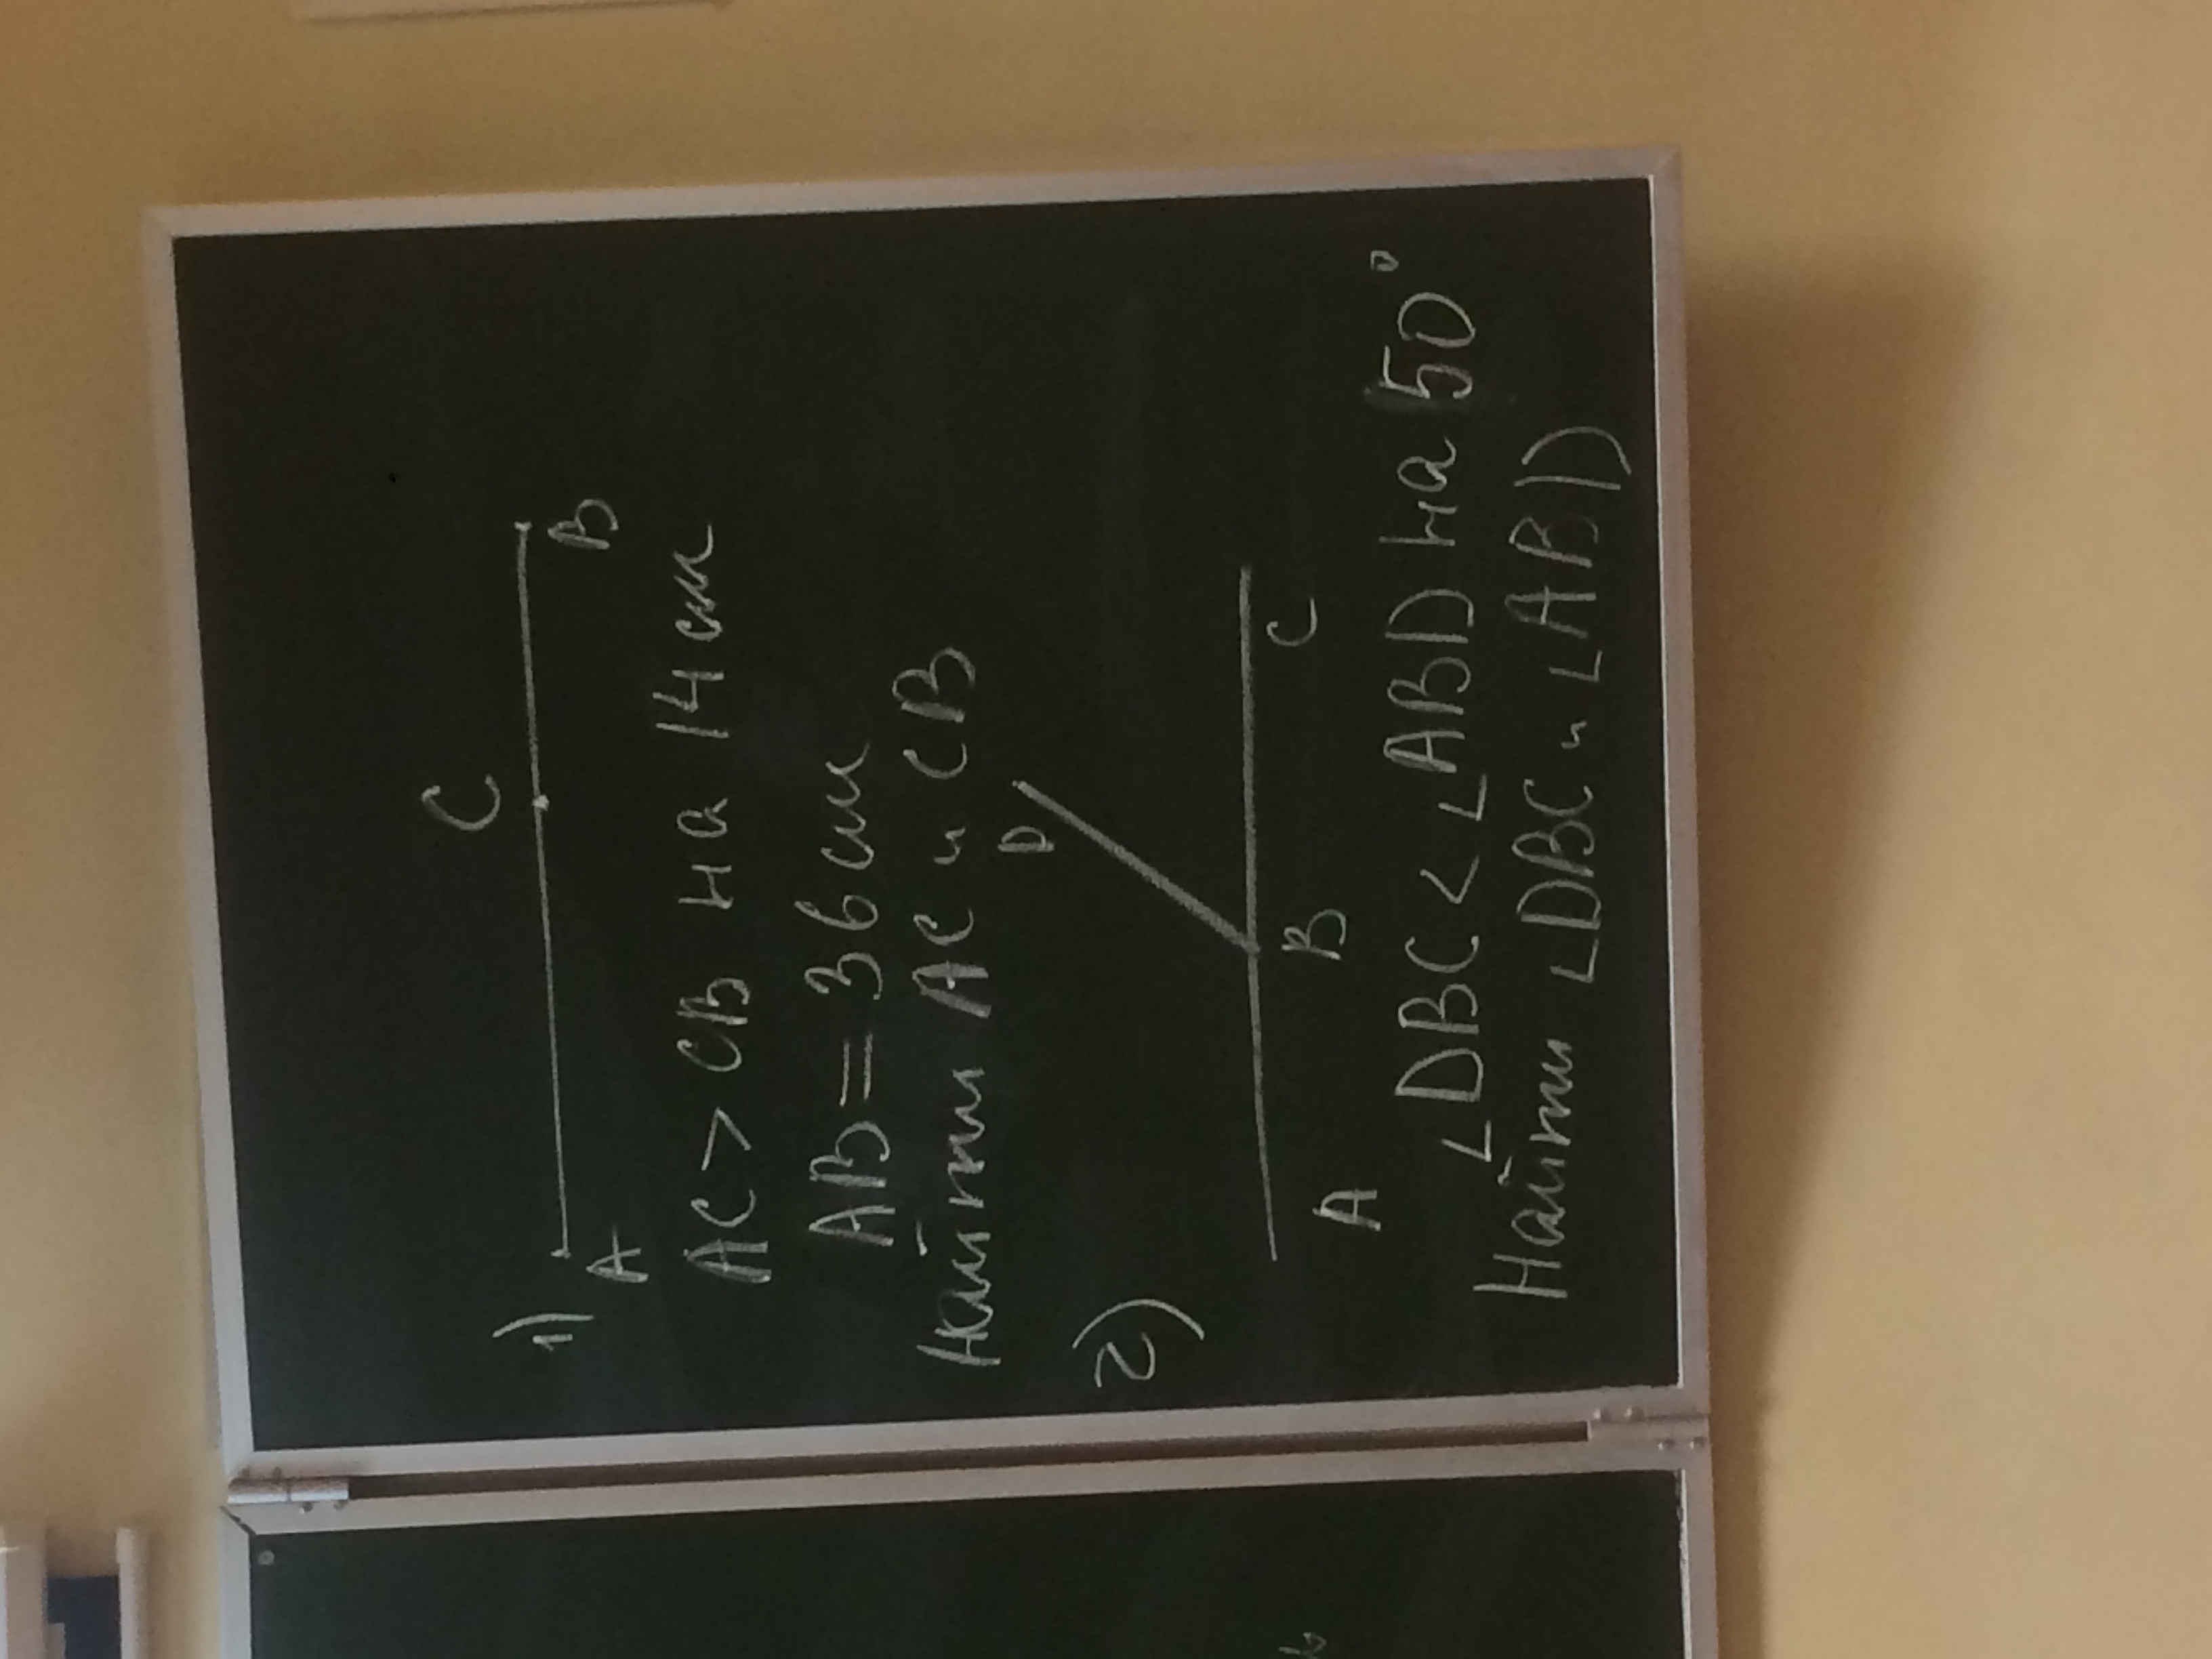 1)
C
A B
AC > CB на 14 см
AB = 36 см
найти AC и CB
2)
D
A B C
∠DBC < ∠ABD на 50°
Найти ∠DBC и ∠ABD